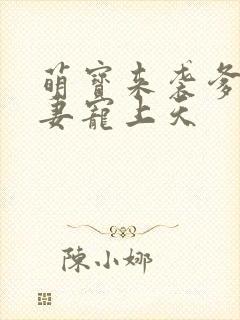 萌寶来袭爹
妻寵上天
陳小娜